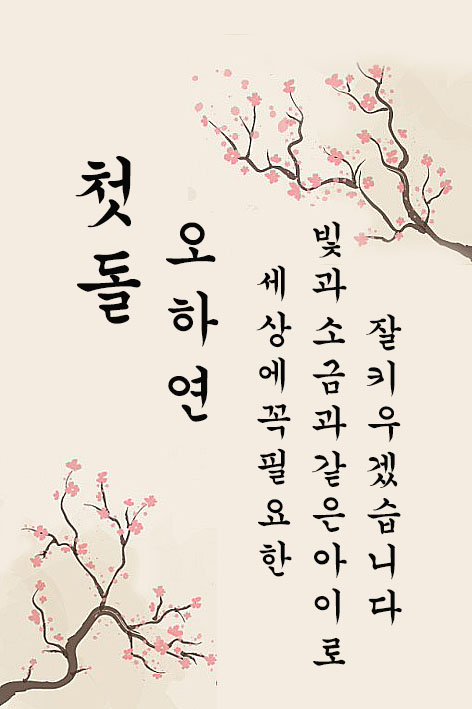 첫돌
오하연
세상에꼭필요한
빛과소금과같은아이로
잘키우겠습니다